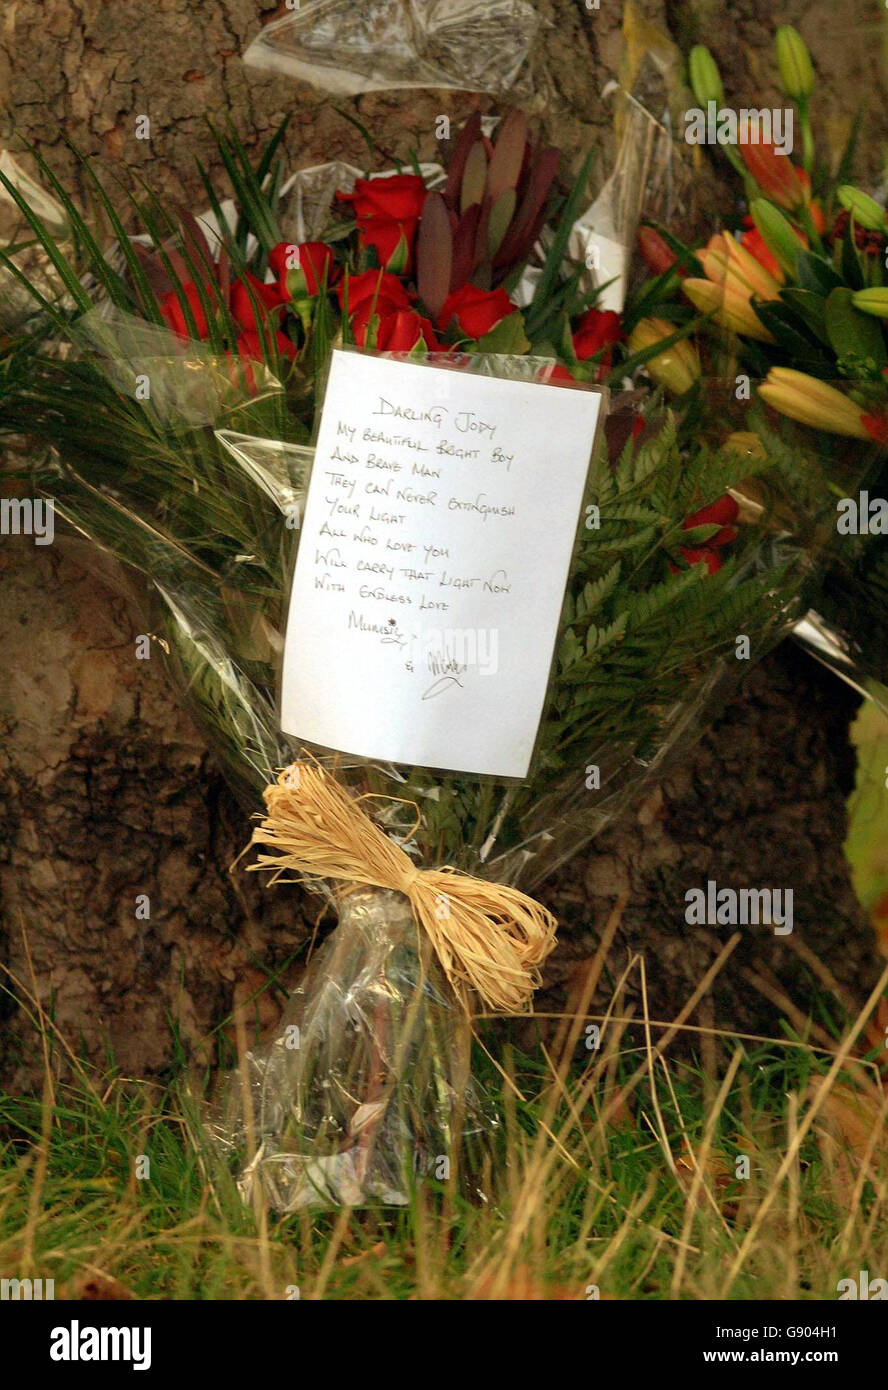 DARLING JODY
MY BEAUTIFUL BRIGHT BOY
AND BRAVE MAN
THEY CAN NEVER EXTINGUISH
YOUR LIGHT
ALL WHO LOVE YOU
WILL CARRY THAT LIGHT NOW
WITH ENDLESS LOVE
Mumsie
&
alamy
alamy
Image ID: G904H1
www.alamy.com